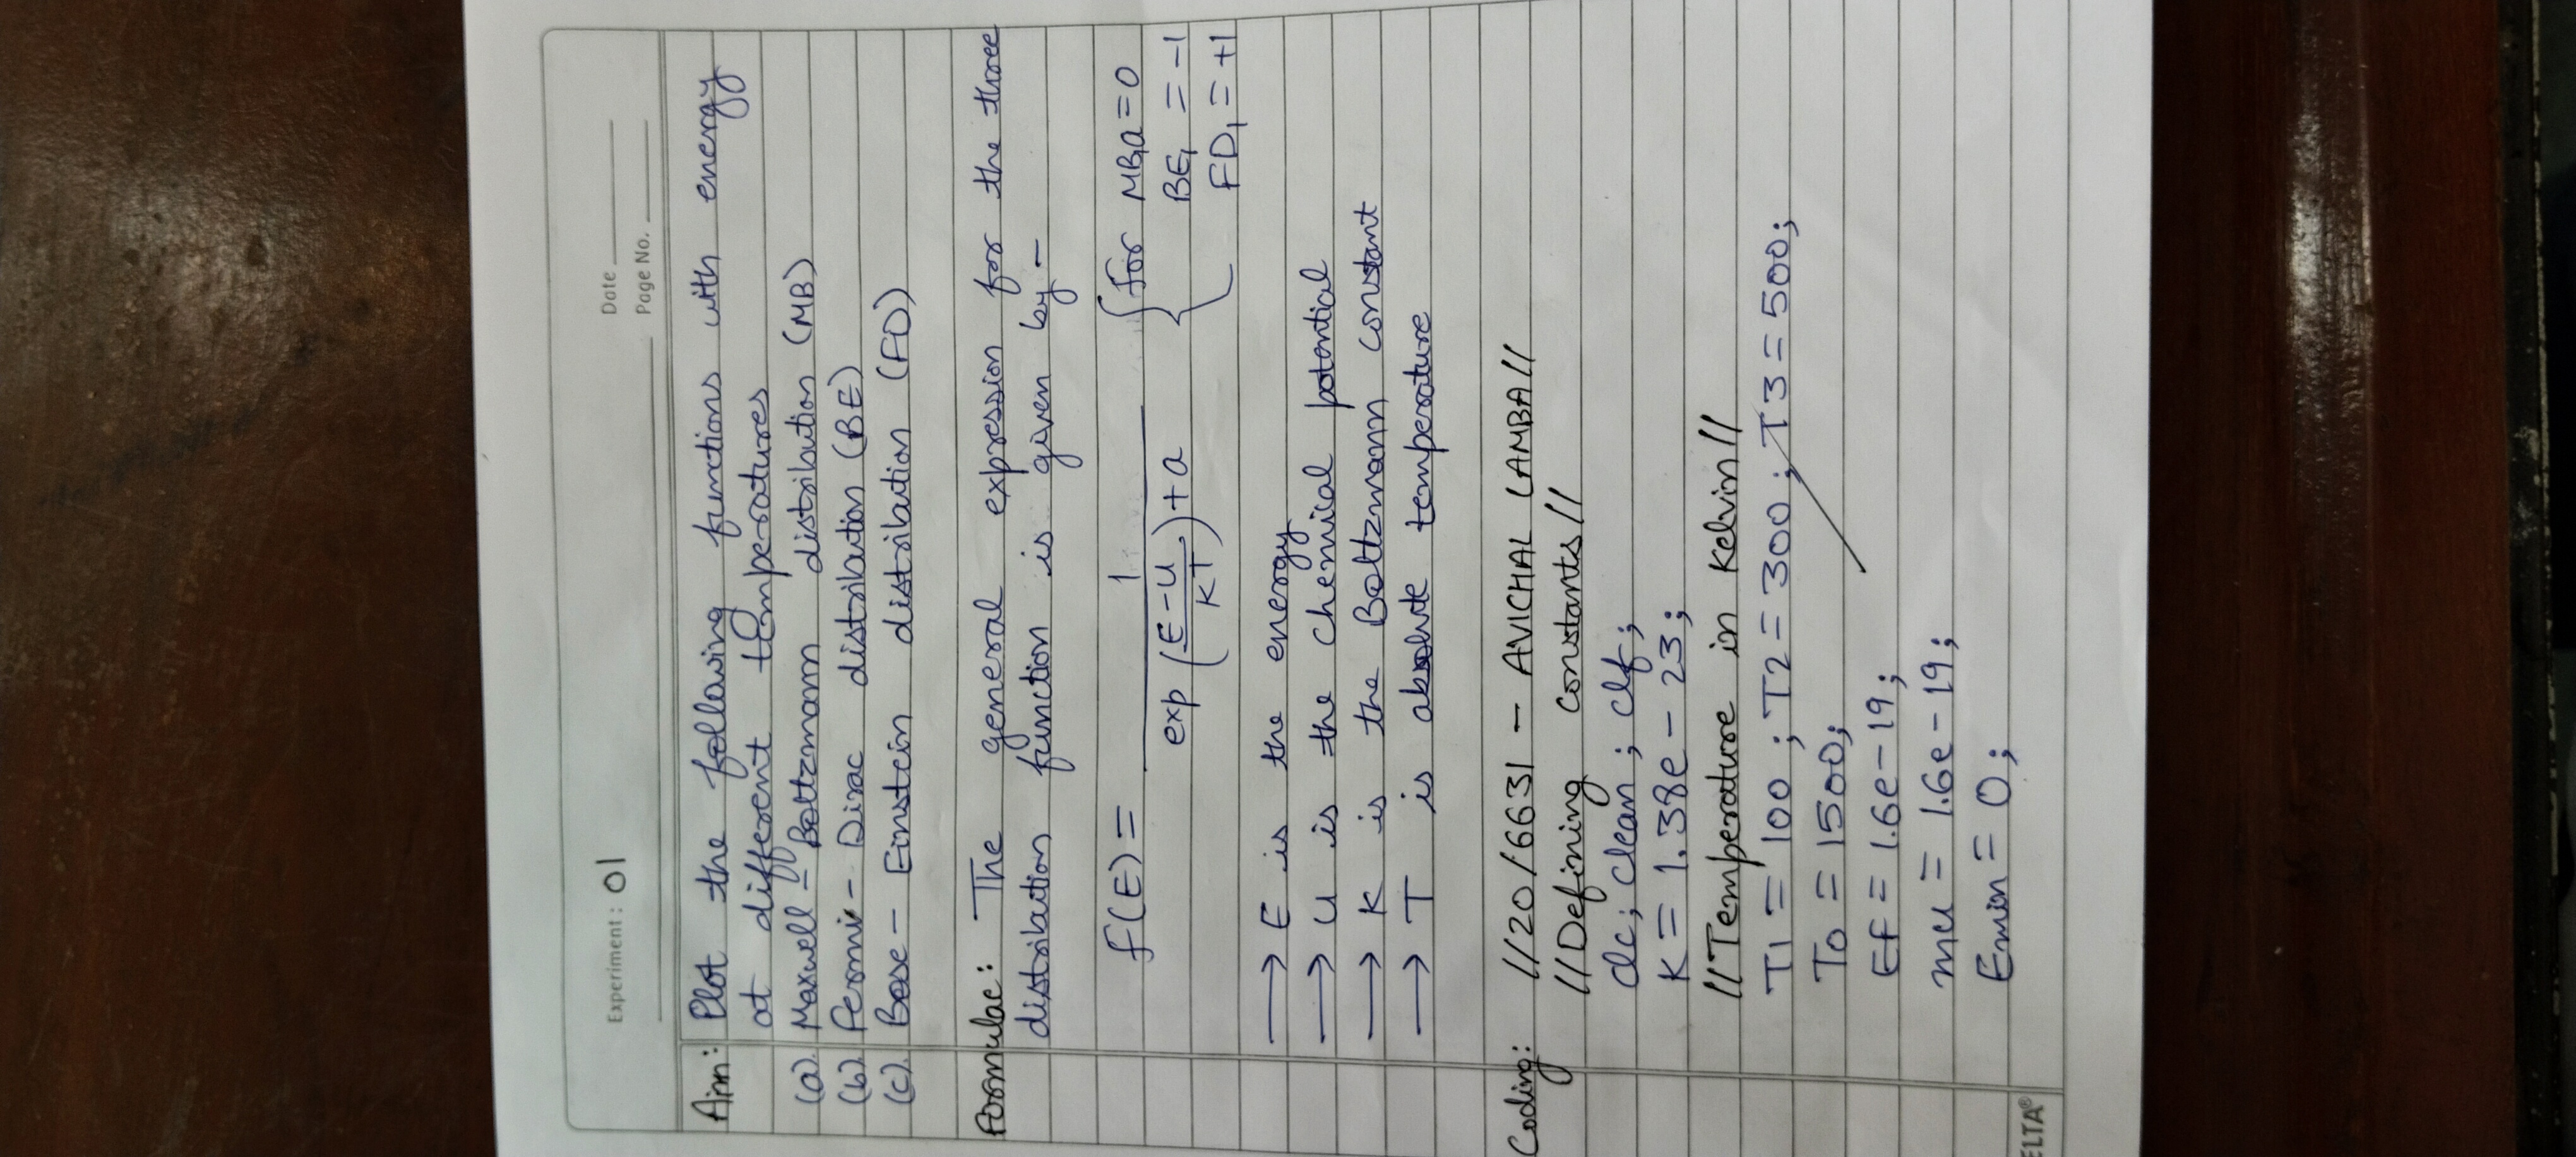 Experiment : 01
Date
Page No.
Aim: Plot the following functions with energy
at different temperatures
(a). Maxwell - Boltzmann distribution (MB)
(b). Fermi - Dirac distribution (BE)
(c). Bose - Einstein distribution (FD)
Formulae: The general expression for the three
distribution function is given by -
f(E) = 1 / exp ((E-U)/KT) + a { for MB, a = 0
BE, = -1
FD, = +1
→ E is the energy
→ U is the chemical potential
→ K is the Boltzmann constant
→ T is absolute temperature
Coding: //20/6631 - AVICHAL LAMBA//
//Defining constants//
clc; clean; clf;
K = 1.38e - 23;
//Temperature in Kelvin//
T1 = 100 ; T2 = 300 ; T3 = 500;
To = 1500;
EF = 1.6e-19;
mu = 1.6e-19;
Emin = 0;
ELTA®